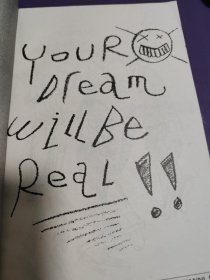 YOUR
Dream
Will Be
Real !!